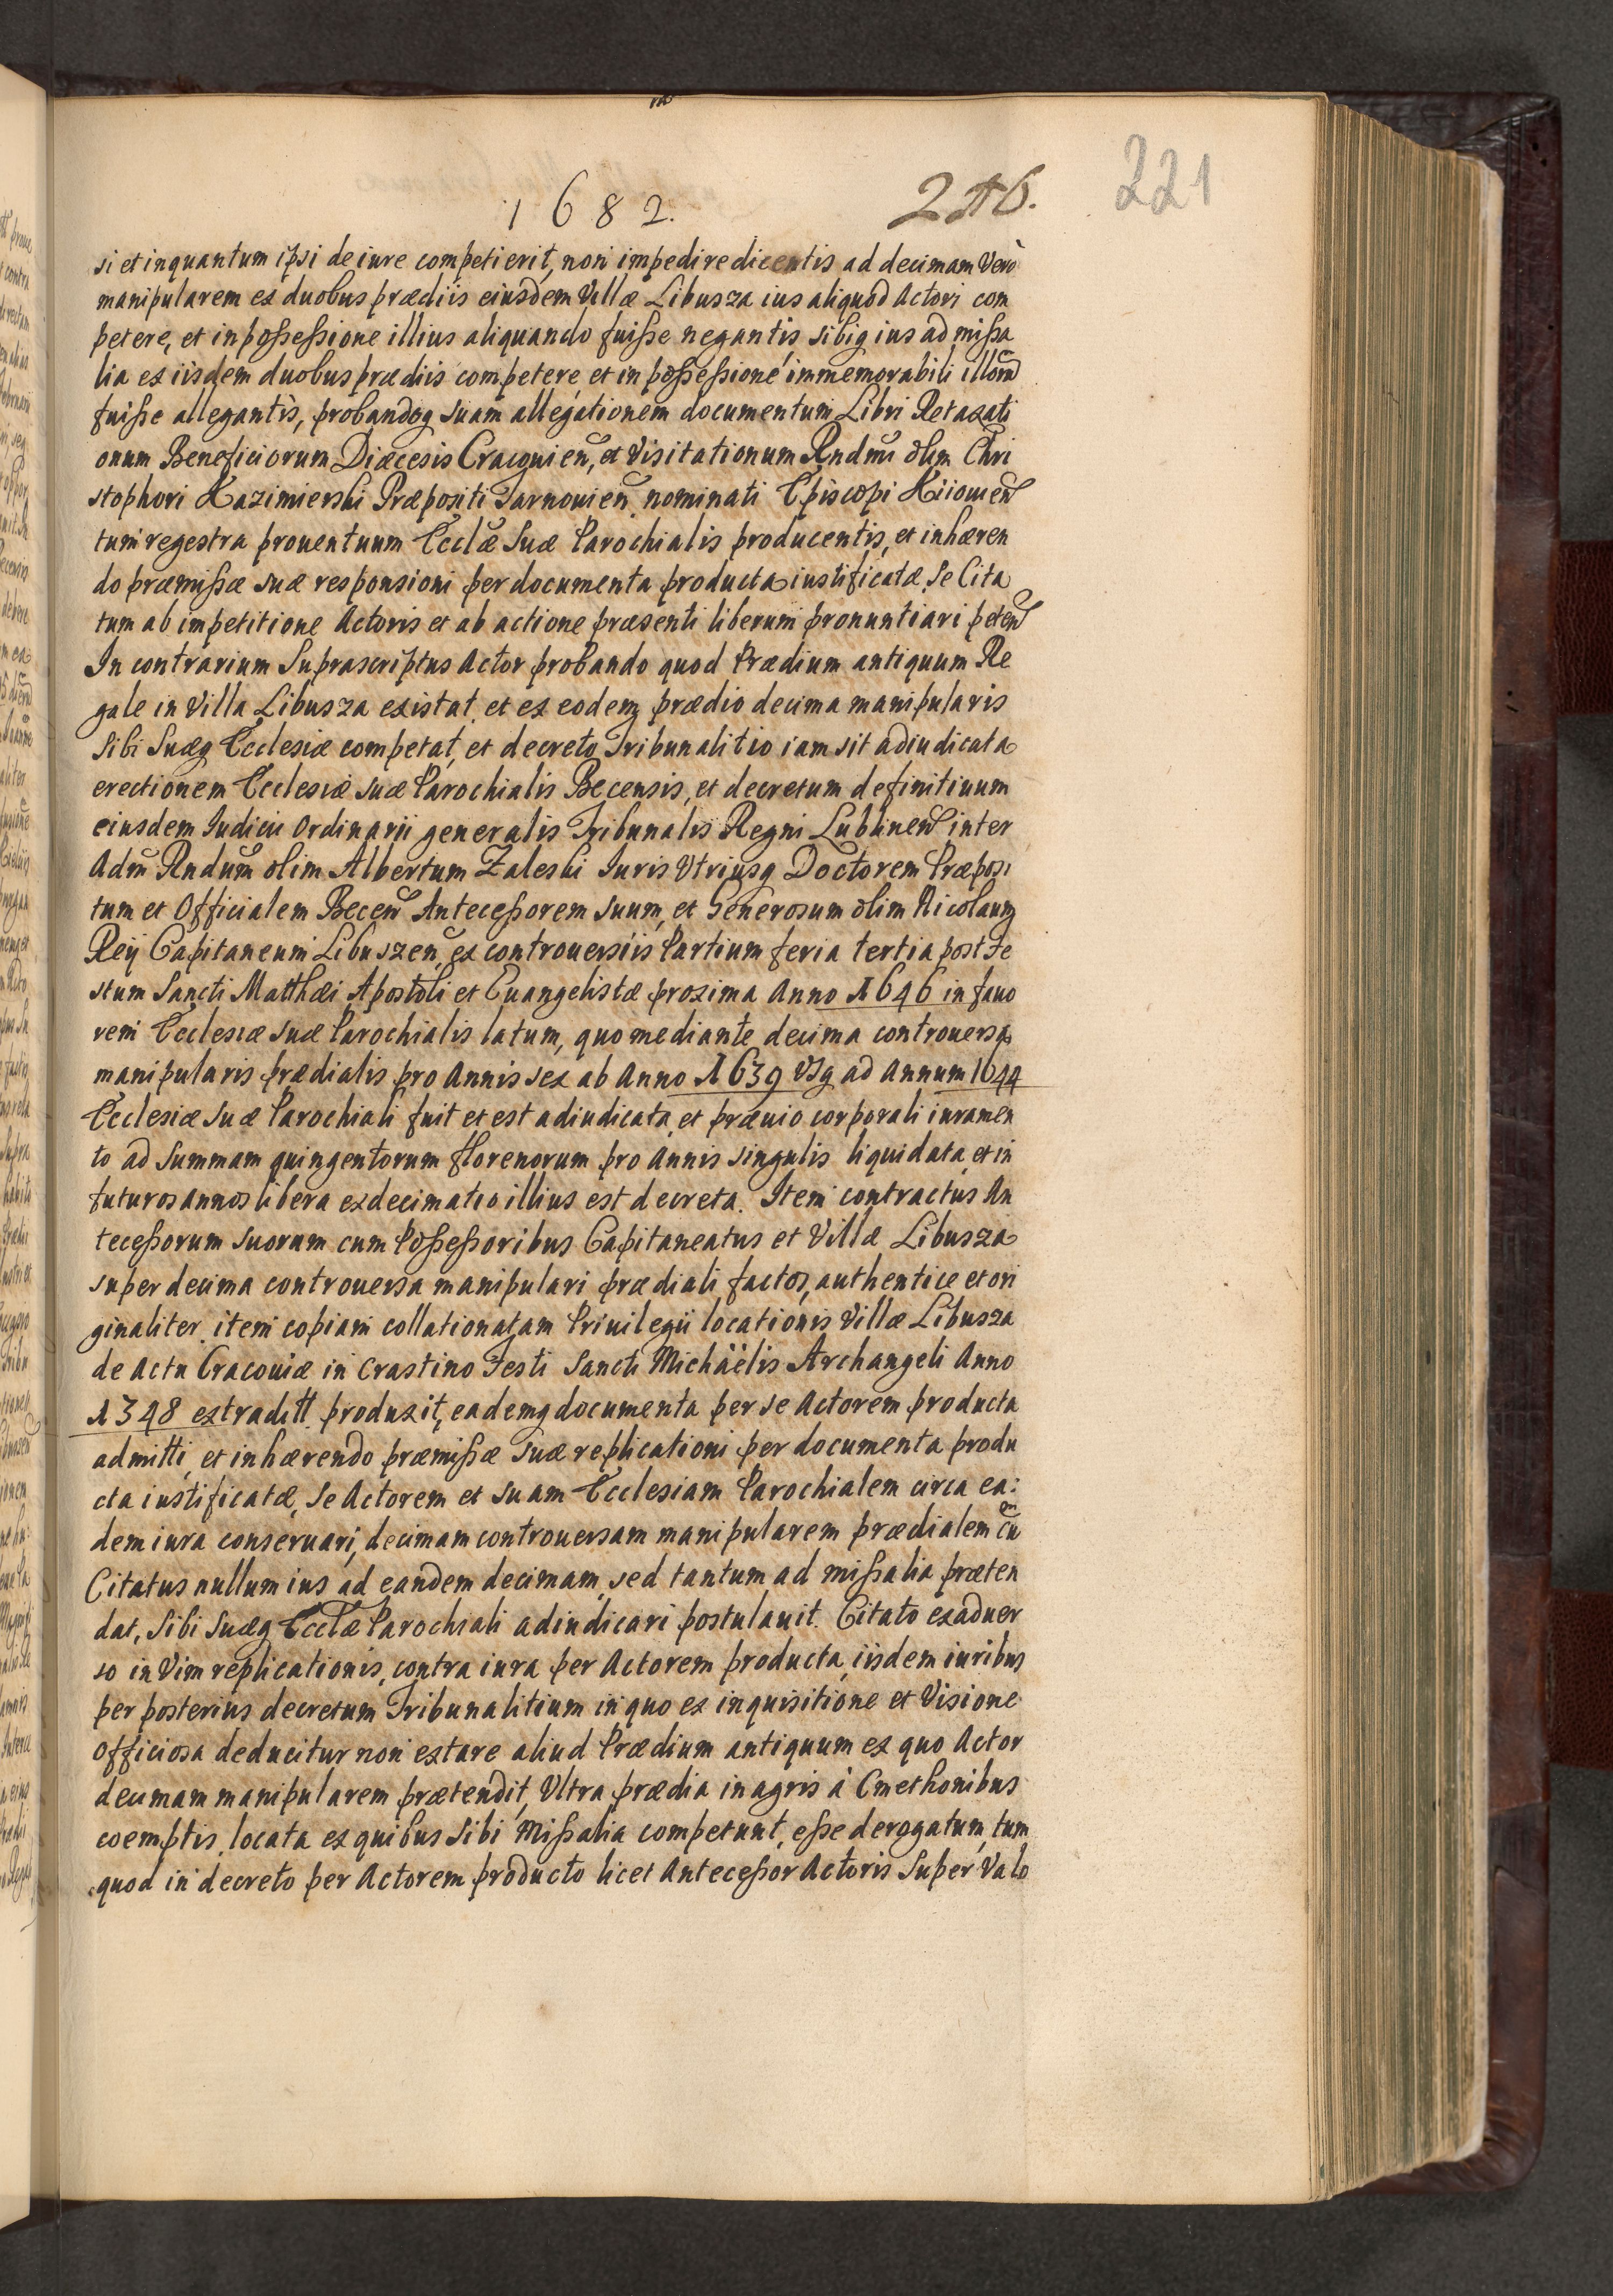 1682. 216.
221
si et inquantum ipsi de iure competierit, non impedire dicentis ad decimam Verò
manipularem ex duobus prædiis eiusdem Villæ Libusza ius aliquod Actori com
petere, et in poßeßione illius aliquando fuiße negantis sibiq ius ad mißa
lia ex iisdem duobus prædiis competere, et in poßeßione immemorabili illorũ
fuiße allegantis, probandoq suam allegationem documentum Libri Retaxati
onum Beneficiorum Diæcesis Cracouien̄, et Visitationum Rndmi olim Chri
stophori Kazimierski Præpositi Tarnouien̄ nominati Episcopi Kiiouien̄
tum regestra prouentuum Eccl̄æ Suæ Parochialis producentis, et inhæren
do præmißæ suæ responsioni per documenta producta iustificatæ, Se Cita
tum ab impetitione Actoris et ab actione præsenti liberum pronuntiari peten̄
In contrarium Suprascriptus Actor probando quod Prædium antiquum Re
gale in Villa Libusza existat, et ex eodem prædio decima manipularis
Sibi Suæq Ecclesiæ competat, et decreto Tribunalitio iam sit adiudicata
erectionem Ecclesiæ suæ Parochialis Becensis, et decretum definitiuum
eiusdem Iudicii Ordinarii generalis Tribunalis Regni Lublinen̄ inter
Adm̄ Rndum olim Albertum Zaleski Iuris Vtriusq Doctorem Præposi
tum et Officialem Becen̄ Anteceßorem suum, et Generosum olim Nicolaum
Reij Capitaneum Libuszen̄ ex controuersiis Partium feria tertia post Fe
stum Sancti Matthæi Apostoli et Euangelistæ proxima Anno 1646 in fauo
rem Ecclesiæ suæ Parochialis latum, quo mediante decima controuersa
manipularis prædialis pro Annis sex ab Anno 1639 Vsq ad Annum 1644
Ecclesiæ suæ Parochiali fuit et est adiudicata, et præuio corporali iuramen
to ad Summam quingentorum florenorum pro Annis singulis liquidata, et in
futuros annos libera exdecimatio illius est decreta. Item contractus An
teceßorum suorum cum Poßeßoribus Capitaneatus et Villæ Libusza
super decima controuersa manipulari prædiali factos, authentice et ori
ginaliter, item copiam collationatam Priuilegii locationis Villæ Libusza
de Actu Cracouiæ in Crastino Festi Sancti Michäelis Archangeli Anno
1348 extraditt produxit, eademq documenta per se Actorem producta
admitti, et inhærendo præmißæ suæ replicationi per documenta produ
cta iustificatæ, se Actorem et suam Ecclesiam Parochialem circa ea:
dem iura conseruari, decimam controuersam manipularem prædialem cum
Citatus nullum ius ad eandem decimam, sed tantum ad mißalia præten
dat, Sibi Suæq Eccl̄æ Parochiali adiudicari postulauit. Citato exaduer
so in Vim replicationis, contra iura per Actorem producta, iisdem iuribus
per posterius decretum Tribunalitium in quo ex inquisitione et Visione
Officiosa deducitur non extare aliud Prædium antiquum ex quo Actor
decimam manipularem prætendit, Vltra prædia in agris à Cmethonibus
coemptis locata ex quibus Sibi Mißalia competunt, eße derogatum, tum
quod in decreto per Actorem producto licet Anteceßor Actoris Super Valo